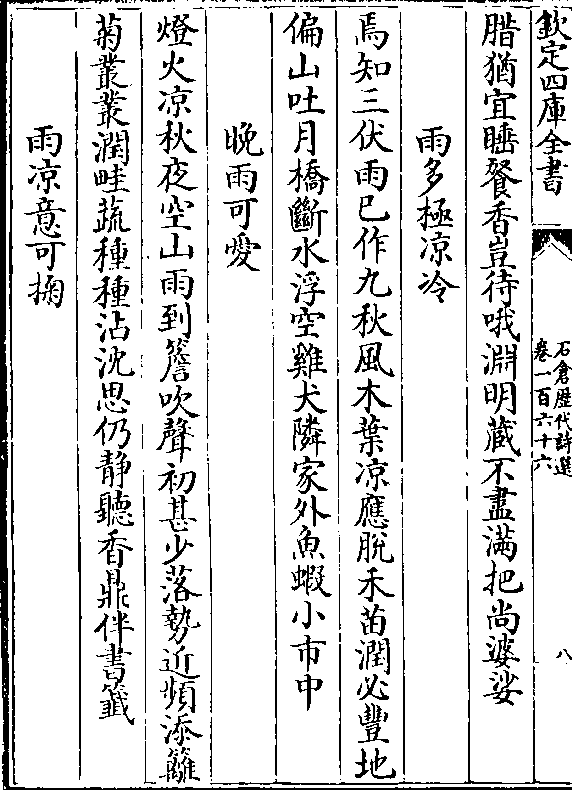 欽定四庫全書
石倉歴代詩選
卷一百六十六
八
腊猶宜睡餐香豈待哦淵明藏不盡滿把尚婆娑
雨多極凉冷
焉知三伏雨已作九秋風木葉凉應脫禾苗潤必豐地
偏山吐月橋斷水浮空雞犬隣家外魚蝦小市中
晚雨可愛
燈火凉秋夜空山雨到簷吹聲初甚少落勢近頻添籬
菊叢叢潤畦蔬種種沾沈思仍静聽香鼎伴書籤
雨凉意可掬